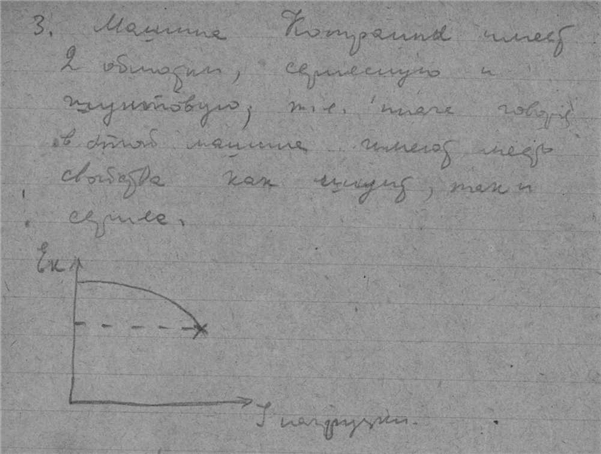 3. Машина Компаунд имеет
2 обмотки, сериесную и
шунтовую, т.е. иначе говоря
в этой машине имеют место
свойства как шунт, так и
сериес.
Eк
I нагрузки.